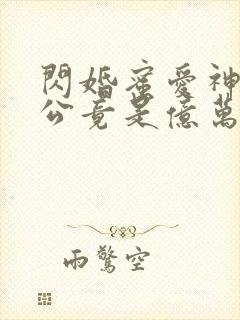 閃婚蜜愛神
公竟是億萬
雨驚空